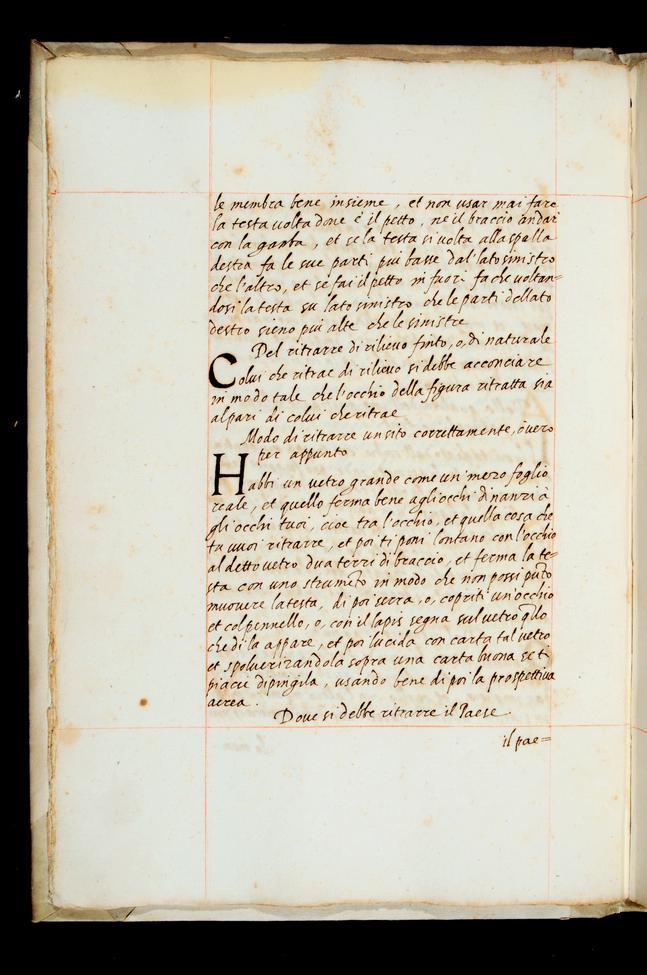 le membra bene insieme, et non usar mai fare
la testa volta doue è il petto, ne il braccio andar
con la gamba, et se la testa si volta alla spalla
destra fa le sue parti piu basse dal lato sinistro
che l'altro, et se fai il petto in fuori fa che voltan=
dosi la testa su lato sinistro che le parti del lato
destro sieno piu alte che le sinistre
Del ritrarre di rilieuo finto, o, di naturale
Colui che ritrae di rilieuo si debbe acconciare
in modo tale che l'occhio della figura ritratta sia
al pari di colui che ritrae
Modo di ritrarre un sito correttamente, ouero
per appunto
Habbi un vetro grande come un mezo foglio
reale, et quello ferma bene agli occhi dinanzi à
gli occhi tuoi, cioe tra l'occhio, et quella cosa che
tu vuoi ritrarre, et poi ti poni lontano con l'occhio
al detto vetro dua terzi di braccio, et ferma la te=
sta con uno strumẽto in modo che non possi pũto
muouere la testa, di poi serra, o, copriti un'occhio
et col pennello, o, con il lapis segna sul vetro q̃llo
che di la appare, et poi lucida con carta tal vetro
et spoluerizandola sopra una carta buona se ti
piace dipingila, usando bene di poi la prospettiua
aerea.
Doue si debbe ritrarre il Paese
il pae=